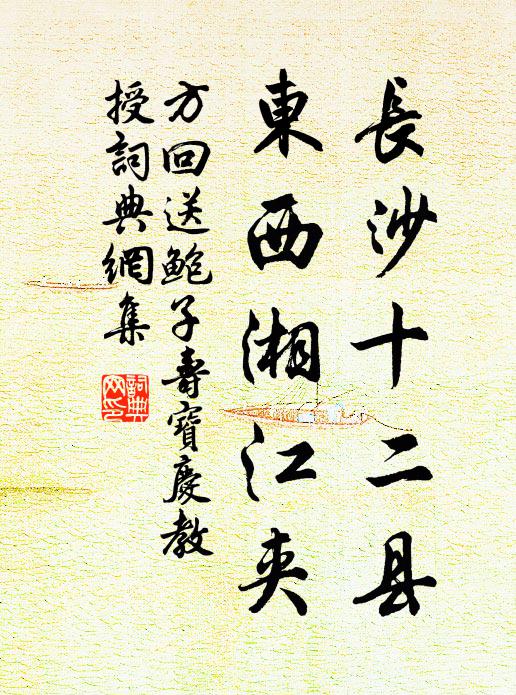 長沙十二县
東西湘江夾
方回送鮑子壽寶慶教
授詞典網集
詞典網印